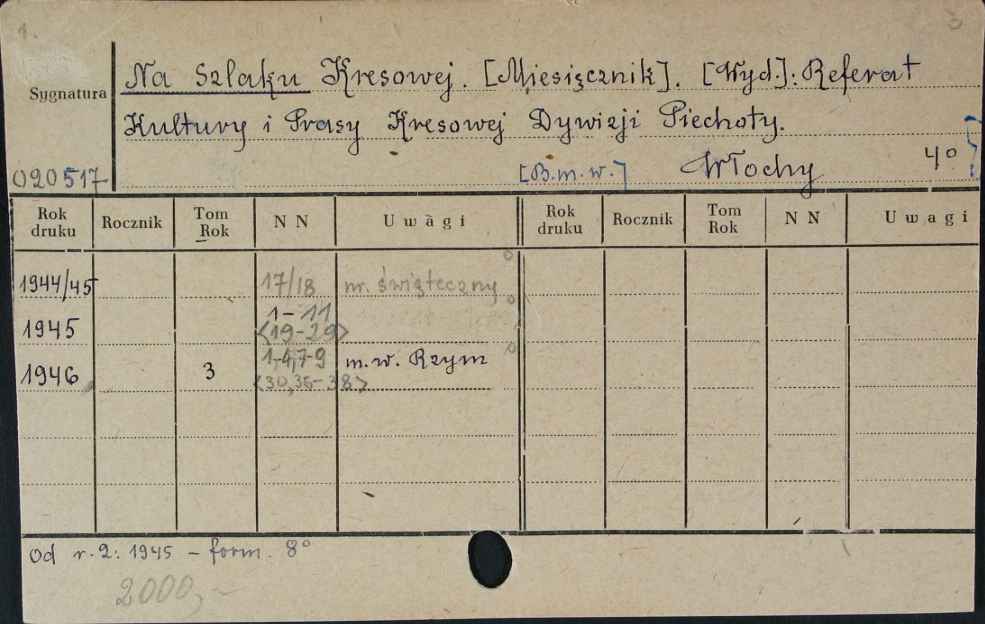 1.
3
Na Szlaku Kresowej. [Miesięcznik]. [Wyd.]: Referat
Sygnatura
Kultury i Prasy Kresowej Dywizji Piechoty.
020517
[B.m.w.] Włochy 4°
Rok druku Rocznik Tom Rok NN Uwagi Rok druku Rocznik Tom Rok NN Uwagi
1944/45 17/18 nr. świąteczny
1945 1-11
<19-29>
1946 3 1-4,7-9 m.w. Rzym
<30,35-38>
Od r. 2: 1945 - form. 8°
2000,-